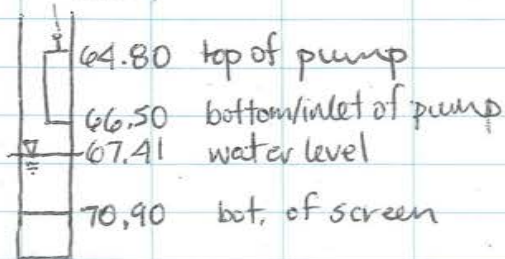 64.80 top of pump
66.50 bottom/inlet of pump
67.41 water level
70.90 bot. of screen